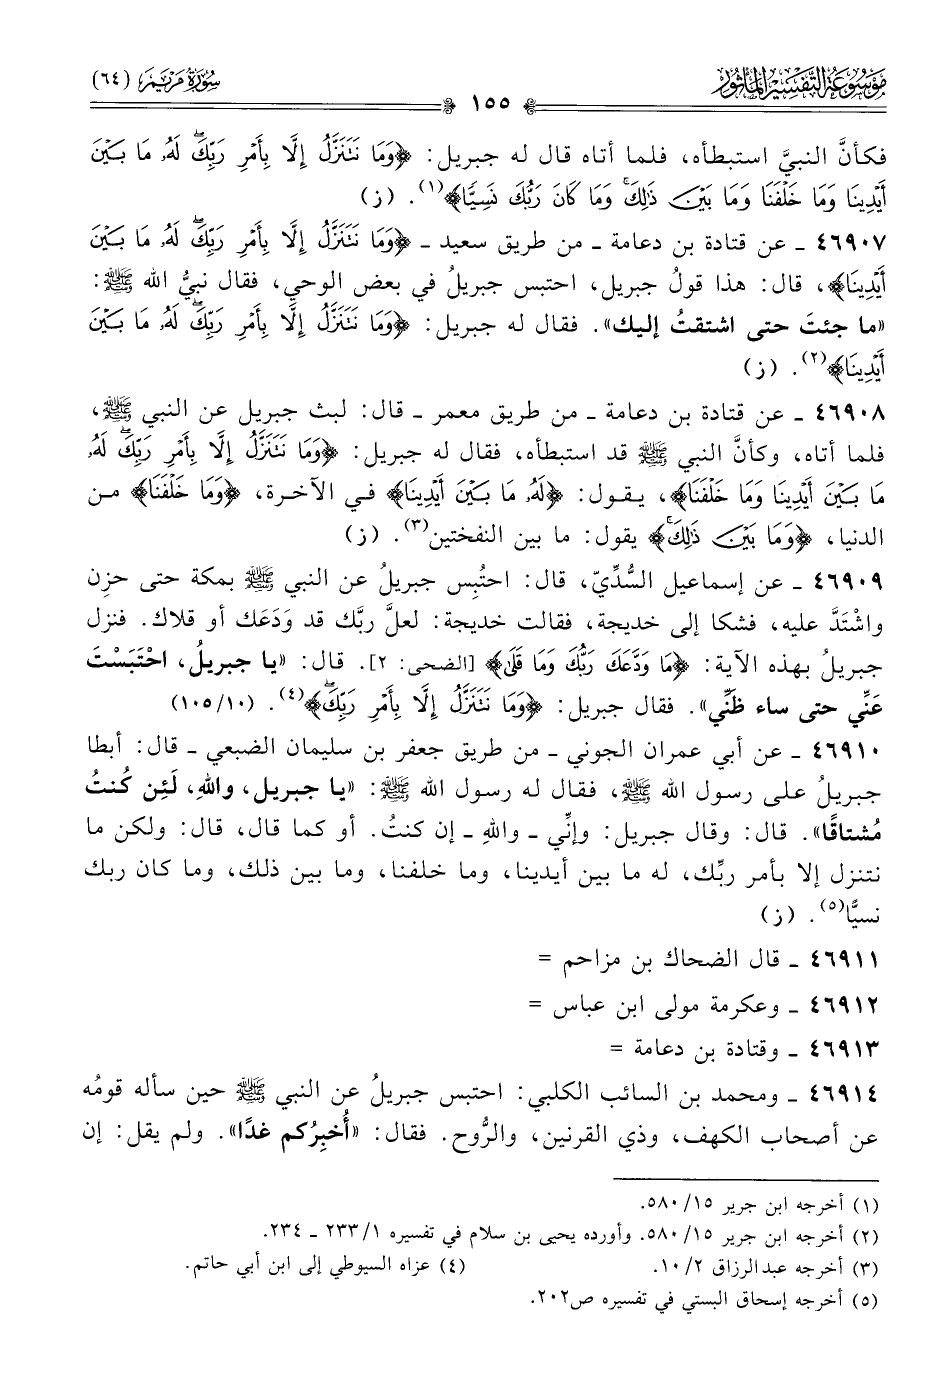 موسوعة التفسير المأثور
١٥٥
سورة مريم (٦٤)
فكأنَّ النبيَّ استبطأه، فلما أتاه قال له جبريل: ﴿وَمَا نَتَنَزَّلُ إِلَّا بِأَمْرِ رَبِّكَۖ لَهُۥ مَا بَيْنَ
أَيْدِينَا وَمَا خَلْفَنَا وَمَا بَيْنَ ذَٰلِكَۚ وَمَا كَانَ رَبُّكَ نَسِيًّا﴾(١). (ز)
٤٦٩٠٧ ـ عن قتادة بن دعامة ـ من طريق سعيد ـ ﴿وَمَا نَتَنَزَّلُ إِلَّا بِأَمْرِ رَبِّكَۖ لَهُۥ مَا بَيْنَ
أَيْدِينَا﴾، قال: هذا قولُ جبريل، احتبس جبريلُ في بعض الوحي، فقال نبيُّ الله ﷺ:
«ما جئتَ حتى اشتقتُ إليك». فقال له جبريل: ﴿وَمَا نَتَنَزَّلُ إِلَّا بِأَمْرِ رَبِّكَۖ لَهُۥ مَا بَيْنَ
أَيْدِينَا﴾(٢). (ز)
٤٦٩٠٨ ـ عن قتادة بن دعامة ـ من طريق معمر ـ قال: لبث جبريل عن النبي ﷺ،
فلما أتاه، وكأنَّ النبي ﷺ قد استبطأه، فقال له جبريل: ﴿وَمَا نَتَنَزَّلُ إِلَّا بِأَمْرِ رَبِّكَۖ لَهُۥ
مَا بَيْنَ أَيْدِينَا وَمَا خَلْفَنَا﴾، يقول: ﴿لَهُۥ مَا بَيْنَ أَيْدِينَا﴾ في الآخرة، ﴿وَمَا خَلْفَنَا﴾ من
الدنيا، ﴿وَمَا بَيْنَ ذَٰلِكَۚ﴾ يقول: ما بين النفختين(٣). (ز)
٤٦٩٠٩ ـ عن إسماعيل السُّدِّيّ، قال: احتُبِس جبريلُ عن النبي ﷺ بمكة حتى حزِن
واشْتَدَّ عليه، فشكا إلى خديجة، فقالت خديجة: لعلَّ ربَّك قد وَدَعَك أو قلاك. فنزل
جبريلُ بهذه الآية: ﴿مَا وَدَّعَكَ رَبُّكَ وَمَا قَلَىٰ﴾ [الضحى: ٢]. قال: «يا جبريلُ، احْتَبَسْتَ
عَنِّي حتى ساء ظَنِّي». فقال جبريل: ﴿وَمَا نَتَنَزَّلُ إِلَّا بِأَمْرِ رَبِّكَۖ﴾(٤). (١٠/ ١٠٥)
٤٦٩١٠ ـ عن أبي عمران الجوني ـ من طريق جعفر بن سليمان الضبعي ـ قال: أبطا
جبريلُ على رسول الله ﷺ، فقال له رسول الله ﷺ: «يا جبريل، واللهِ، لَئِن كُنتُ
مُشتاقًا». قال: وقال جبريل: وإنِّي ـ واللهِ ـ إن كنتُ. أو كما قال، قال: ولكن ما
نتنزل إلا بأمر ربِّك، له ما بين أيدينا، وما خلفنا، وما بين ذلك، وما كان ربك
نسيًّا(٥). (ز)
٤٦٩١١ ـ قال الضحاك بن مزاحم =
٤٦٩١٢ ـ وعكرمة مولى ابن عباس =
٤٦٩١٣ ـ وقتادة بن دعامة =
٤٦٩١٤ ـ ومحمد بن السائب الكلبي: احتبس جبريلُ عن النبي ﷺ حين سأله قومُه
عن أصحاب الكهف، وذي القرنين، والرُّوح. فقال: «أُخبِرُكم غدًا». ولم يقل: إن
(١) أخرجه ابن جرير ١٥/ ٥٨٠.
(٢) أخرجه ابن جرير ١٥/ ٥٨٠. وأورده يحيى بن سلام في تفسيره ١/ ٢٣٣ ـ ٢٣٤.
(٣) أخرجه عبدالرزاق ٢/ ١٠. (٤) عزاه السيوطي إلى ابن أبي حاتم.
(٥) أخرجه إسحاق البستي في تفسيره ص٢٠٢.